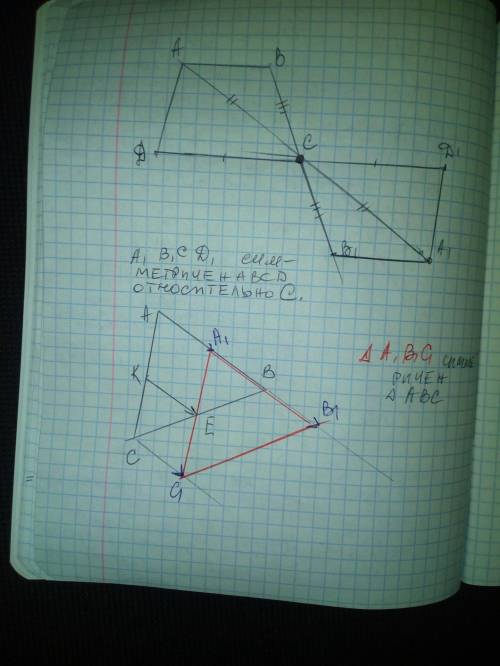 A B
C
Д Д1
B1 A1
A1 B1 C Д1 СИМ-
МЕТРИЧЕН АВСД
ОТНОСИТЕЛЬНО С.
A
A1
K B
E B1
C
G
Δ A1 B1 G СИММЕ
РИЧЕН
Δ ABC